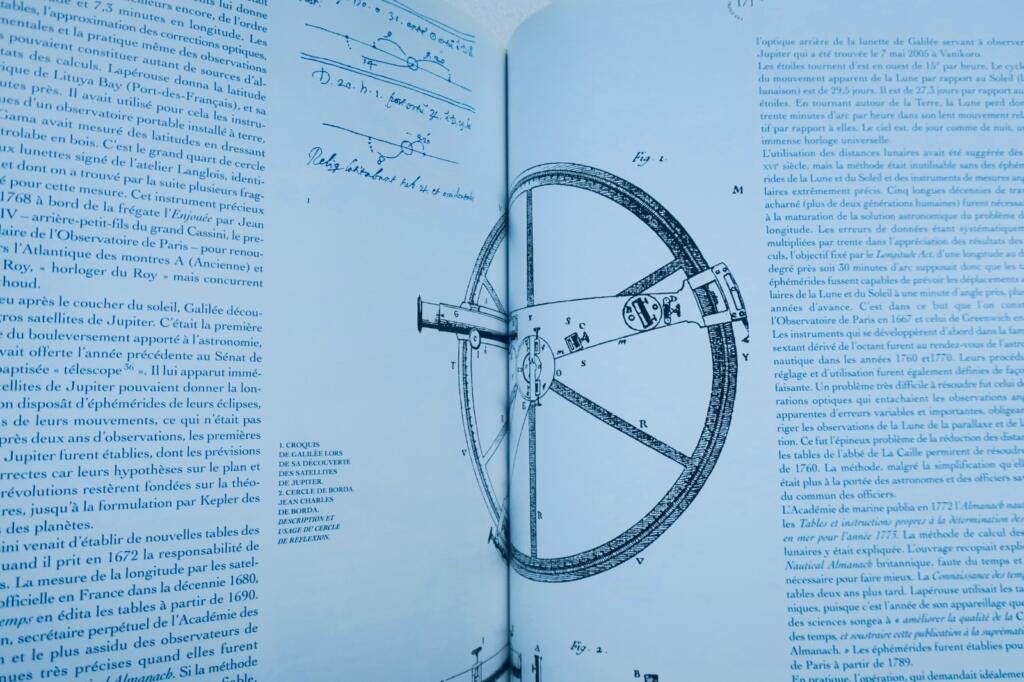 et 7,3 minutes en longitude. Les
tables, l'approximation des corrections optiques,
mentales et la pratique même des observations
pouvaient constituer autant de sources d'al-
tats des calculs. Lapérouse donna la latitude
rique de Lituya Bay (Port-des-Français), et sa
utes près. Il avait utilisé pour cela les instru-
ues d'un observatoire portable installé à terre,
Gama avait mesuré des latitudes en dressant
trolabe en bois. C'est le grand quart de cercle
ux lunettes signé de l'atelier Langlois, identi-
et dont on a trouvé par la suite plusieurs frag-
é pour cette mesure. Cet instrument précieux
1768 à bord de la frégate l'Enjouée par Jean
IV – arrière-petit-fils du grand Cassini, le pre-
laire de l'Observatoire de Paris – pour renou-
rs l'Atlantique des montres A (Ancienne) et
Roy, « horloger du Roy » mais concurrent
thoud.
eu après le coucher du soleil, Galilée décou-
gros satellites de Jupiter. C'était la première
du bouleversement apporté à l'astronomie,
vait offerte l'année précédente au Sénat de
baptisée « télescope 36 ». Il lui apparut immé-
tellites de Jupiter pouvaient donner la lon-
on disposât d'éphémérides de leurs éclipses,
s de leurs mouvements, ce qui n'était pas
près deux ans d'observations, les premières
Jupiter furent établies, dont les prévisions
rrectes car leurs hypothèses sur le plan et
révolutions restèrent fondées sur la théo-
res, jusqu'à la formulation par Kepler des
s des planètes.
ini venait d'établir de nouvelles tables des
quand il prit en 1672 la responsabilité de
s. La mesure de la longitude par les satel-
officielle en France dans la décennie 1680,
emps en édita les tables à partir de 1690.
n, secrétaire perpétuel de l'Académie des
n et le plus assidu des observateurs de
nues très précises quand elles furent
al Almanach. Si la méthode
14
1
1. CROQUIS
DE GALILÉE LORS
DE SA DÉCOUVERTE
DES SATELLITES
DE JUPITER.
2. CERCLE DE BORDA.
JEAN CHARLES
DE BORDA.
DESCRIPTION ET
USAGE DU CERCLE
DE RÉFLEXION.
Fig. 1.
M
G
S
C
S
Y
T
V
R
R
V
Fig. 2.
A
B
l'optique arrière de la lunette de Galilée servant à observer
Jupiter qui a été trouvée le 7 mai 2005 à Vanikoro.
Les étoiles tournent d'est en ouest de 15° par heure. Le cycle
du mouvement apparent de la Lune par rapport au Soleil (l
lunaison) est de 29,5 jours. Il est de 27,3 jours par rapport au
étoiles. En tournant autour de la Terre, la Lune perd don
trente minutes d'arc par heure dans son lent mouvement rela
tif par rapport à elles. Le ciel est, de jour comme de nuit, u
immense horloge universelle.
L'utilisation des distances lunaires avait été suggérée dès
XVIe siècle, mais la méthode était inutilisable sans des éphém
rides de la Lune et du Soleil et des instruments de mesures ang
laires extrêmement précis. Cinq longues décennies de tra
acharné (plus de deux générations humaines) furent nécessa
à la maturation de la solution astronomique du problème d
longitude. Les erreurs de données étant systématiquem
multipliées par trente dans l'appréciation des résultats des
culs, l'objectif fixé par le Longitude Act, d'une longitude au d
degré près soit 30 minutes d'arc supposait donc que les t
éphémérides fussent capables de prévoir les déplacements a
laires de la Lune et du Soleil à une minute d'angle près, plus
années d'avance. C'est dans ce but que l'on const
l'Observatoire de Paris en 1667 et celui de Greenwich en
Les instruments qui se développèrent d'abord dans la fam
sextant dérivé de l'octant furent au rendez-vous de l'astro
nautique dans les années 1760 et1770. Leurs procédu
réglage et d'utilisation furent également définies de faço
faisante. Un problème très difficile à résoudre fut celui de
rations optiques qui entachaient les observations ang
apparentes d'erreurs variables et importantes, obligean
riger les observations de la Lune de la parallaxe et de la
tion. Ce fut l'épineux problème de la réduction des distan
les tables de l'abbé de La Caille permirent de résoudr
de 1760. La méthode, malgré la simplification qu'ell
était plus à la portée des astronomes et des officiers sav
du commun des officiers.
L'Académie de marine publia en 1772 l'Almanach nau
les Tables et instructions propres à la détermination des
en mer pour l'année 1773. La méthode de calcul des
lunaires y était expliquée. L'ouvrage recopiait expli
Nautical Almanach britannique, faute du temps et
nécessaire pour faire mieux. La Connaissance des temp
tables deux ans plus tard. Lapérouse utilisait les tab
niques, puisque c'est l'année de son appareillage que
des sciences songea à « améliorer la qualité de la C
des temps, et soustraire cette publication à la supréma
Almanach. » Les éphémérides furent établies pou
de Paris à partir de 1789.
En pratique, l'opération, qui demandait idéalem